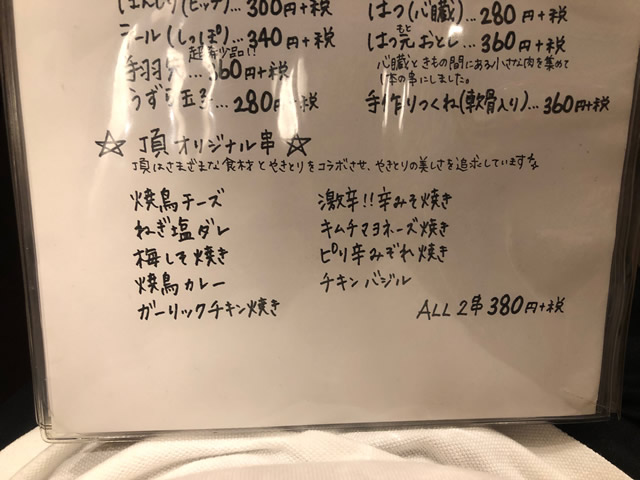 ぼんじり(ヒップ)...300円+税
テール(しっぽ)...340円+税
超希少品!!
手羽先...360円+税
うずら玉子...280円+税
はつ(心臓)...280円+税
はつ元おとし...360円+税
もと
心臓ときもの間にある小さな肉を集めて
1本の串にしました。
手作りつくね(軟骨入り)...360円+税
☆ 頂オリジナル串 ☆
頂はさまざまな食材とやきとりをコラボさせ、やきとりの美しさを追求しています
焼鳥チーズ
ねぎ塩ダレ
梅しそ焼き
焼鳥カレー
ガーリックチキン焼き
激辛!!辛みそ焼き
キムチマヨネーズ焼き
ピリ辛みぞれ焼き
チキンバジル
ALL 2串 380円+税